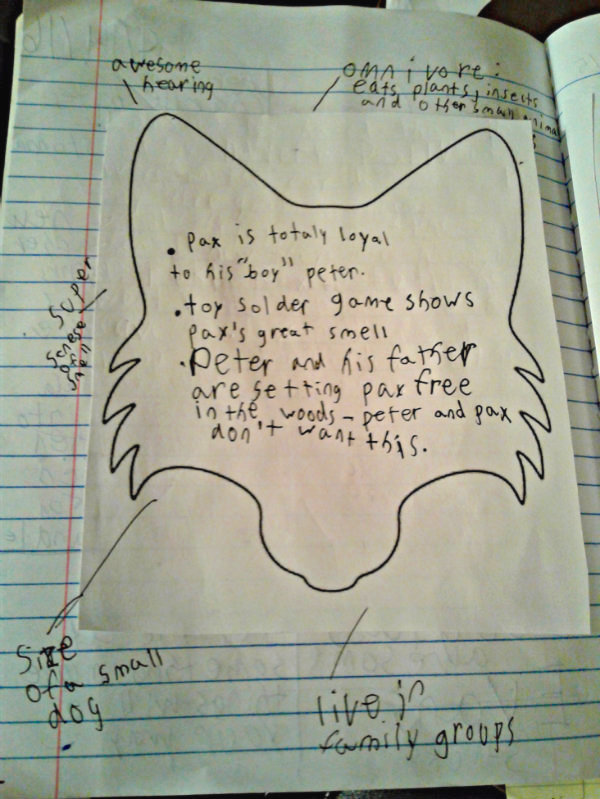 awesome
hearing
omnivore:
eats plants, insects
and other small animals
• pax is totaly loyal
to his "boy" peter.
• toy solder game shows
pax's great smell
• Peter and his father
are setting pax free
in the woods - peter and pax
don't want this.
super
sense of
smell
size
of a small
dog
live in
family groups